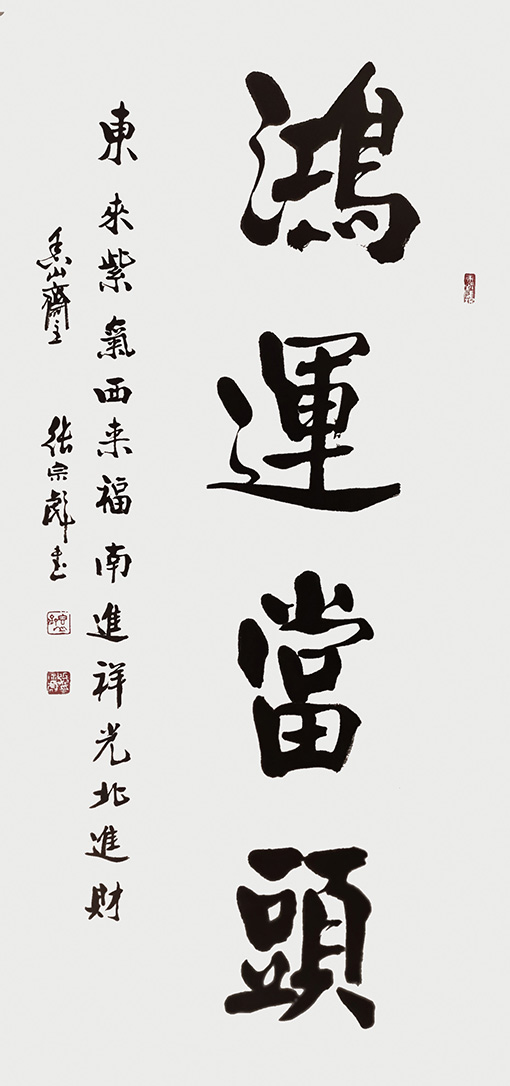 鴻運當頭
東來紫氣西来福南進祥光北進財
香山齋主 張宗彪書